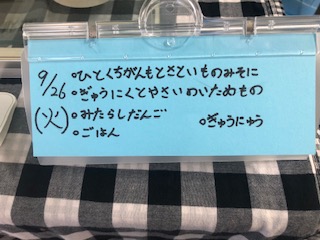 9/26 ○ひとくちがんもとさといものみそに
○ぎゅうにくとやさいのいためもの
(火) ○みたらしだんご ○ぎゅうにゅう
○ごはん